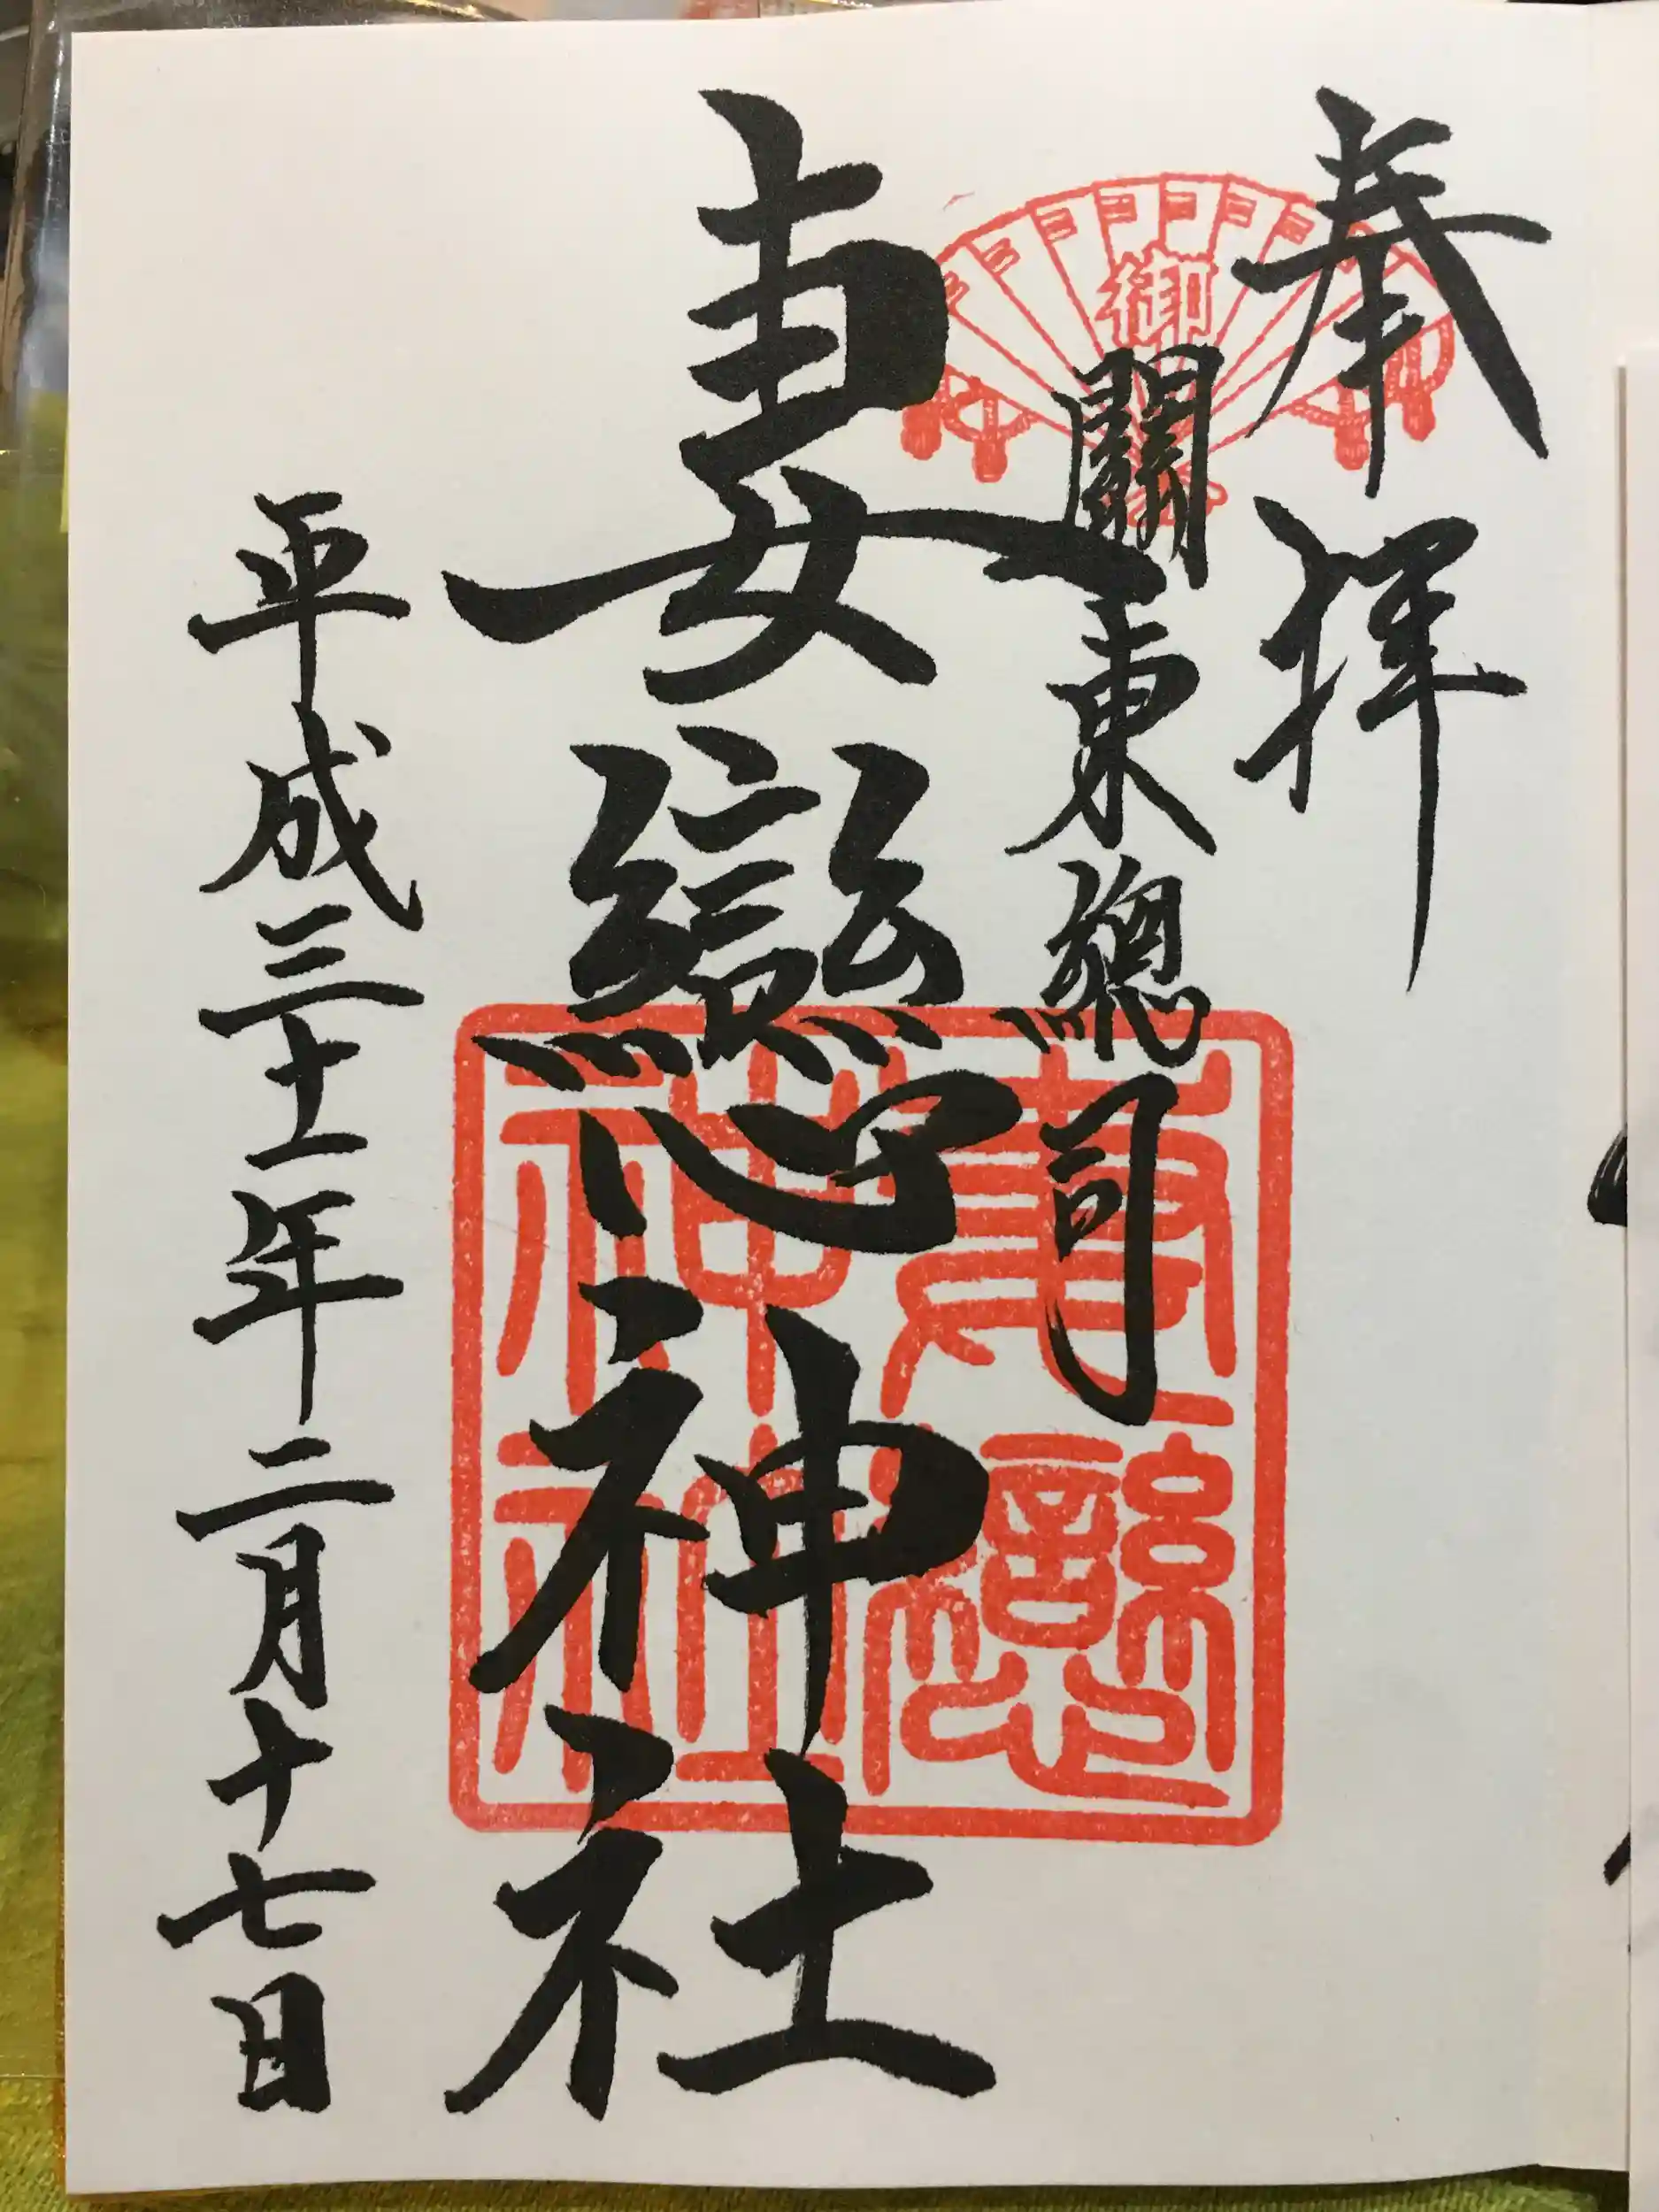 奉拝
御
關東總司
妻戀神社
妻戀
神社
平成三十一年二月十七日